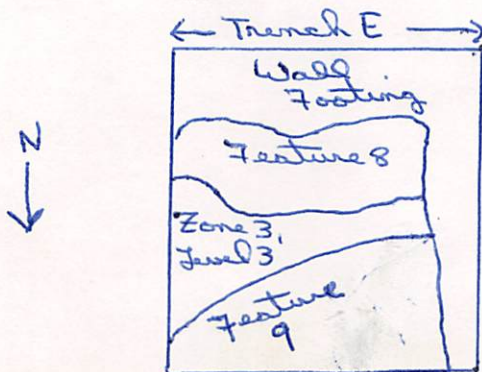 Trench E
Wall
Footing
N
Feature 8
Zone 3,
Level 3
Feature
9